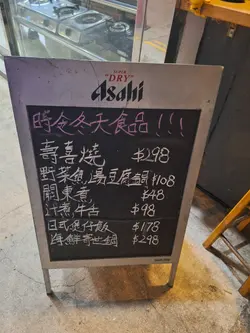 SUPER
"DRY"
Asahi
時令冬天食品！！！
壽喜燒 $298
野菜魚湯豆腐鍋 $108
關東煮 $48
汁煮牛舌 $98
日式煲仔飯 $178
海鮮寄世鍋 $298